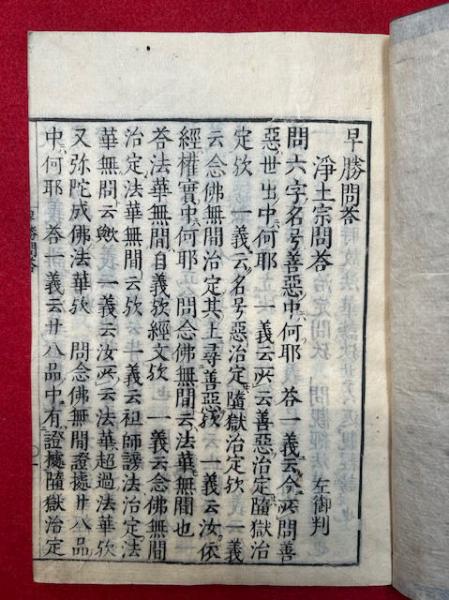 早勝問答
淨土宗問答　左御判
問六字名号善惡中何耶　答一義云今所問善
惡世出中何耶　一義云所云善惡治定墮獄治
定欤　一義云名号惡治定墮獄治定欤　一義
云念佛無間治定其上尋善惡欤　一義云汝依
經權實中何耶　問念佛無間云法華無間也
答法華無間自義欤經文欤　一義云念佛無間
治定法華無間云欤　一義云祖師謗法治定法
華無間云欤　一義云汝所云法華超過法華欤
又弥陀成佛法華欤　問念佛無間證據廿八品
中何耶　答一義云廿八品中有證據墮獄治定
早勝問答